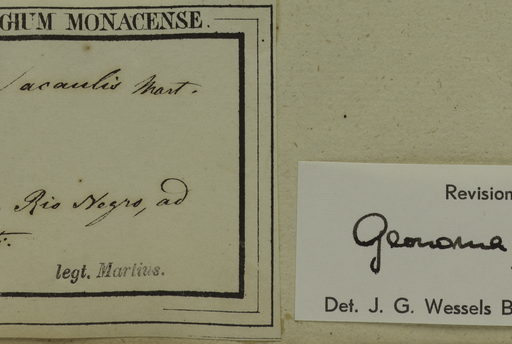 GIUM MONACENSE.
acaulis Mart.
Rio Negro, ad
legt. Martius.
Revision
Geonoma
Det. J. G. Wessels B